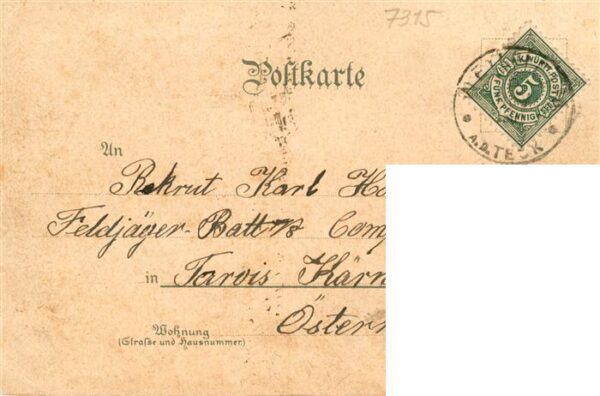 7315
Postkarte
K. WÜRTT. POST
FÜNF PFENNIG
5
A. D. TECK
An
Rekrut Karl
Feldjäger-Batt. 8 Comp
in Tarvis Kärn
Östern
Wohnung
(Straße und Hausnummer.)